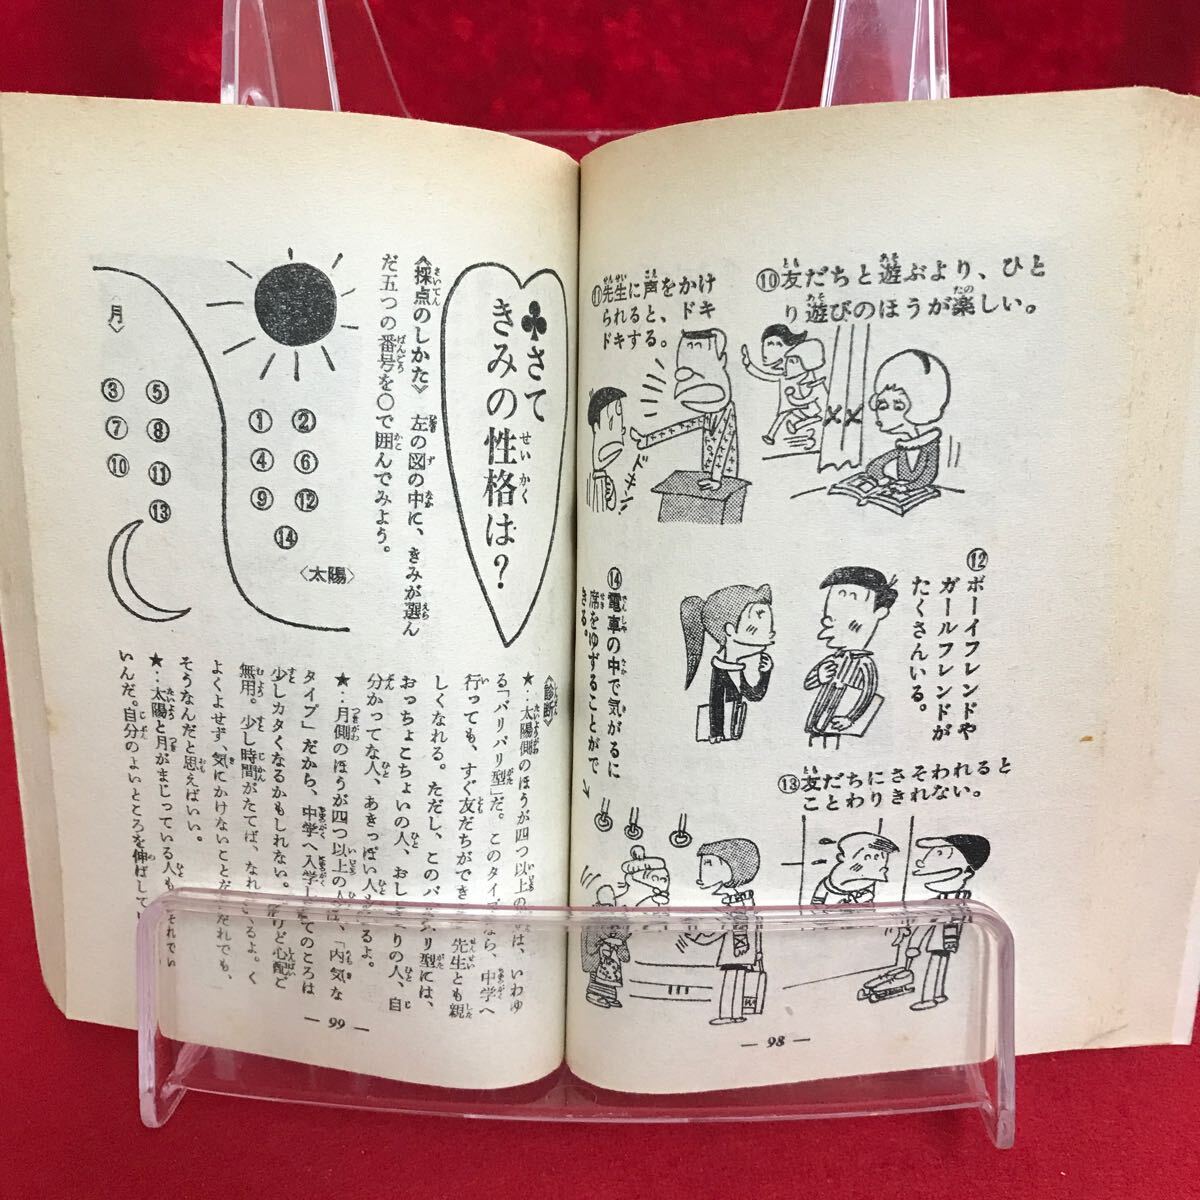 ⑩友だちと遊ぶより、ひと
り遊びのほうが楽しい。
⑪先生に声をかけ
られると、ドキ
ドキする。
ドキン
⑫
ボーイフレンドや
ガールフレンドが
たくさんいる。
⑬友だちにさそわれると
ことわりきれない。
⑭電車の中で気がるに
席をゆずることがで
きる。
— 98 —
♣さて
きみの性格は?
《採点のしかた》 左の図の中に、きみが選ん
だ五つの番号を○で囲んでみよう。
〈太陽〉
① ②
④ ⑥
⑨ ⑫
⑭
〈月〉
③ ⑤
⑦ ⑧
⑩ ⑪
⑬
《診断》
★‥太陽側のほうが四つ以上の は、いわゆ
る「バリバリ型」だ。このタイプ なら、中学へ
行っても、すぐ友だちができ 先生とも親
しくなれる。ただし、このバ バリ型には、
おっちょこちょいの人、おし りの人、自
分かってな人、あきっぽい人も るよ。
★‥月側のほうが四つ以上の人は、「内気な
タイプ」だから、中学へ入学し てのころは
少しカタくなるかもしれない。 けど心配ご
無用。少し時間がたてば、なれ くるよ。く
よくよせず、気にかけないことだ だれでも、
そうなんだと思えばいい。
★‥太陽と月がまじっている人も それでい
いんだ。自分のよいところを伸ばして
— 99 —